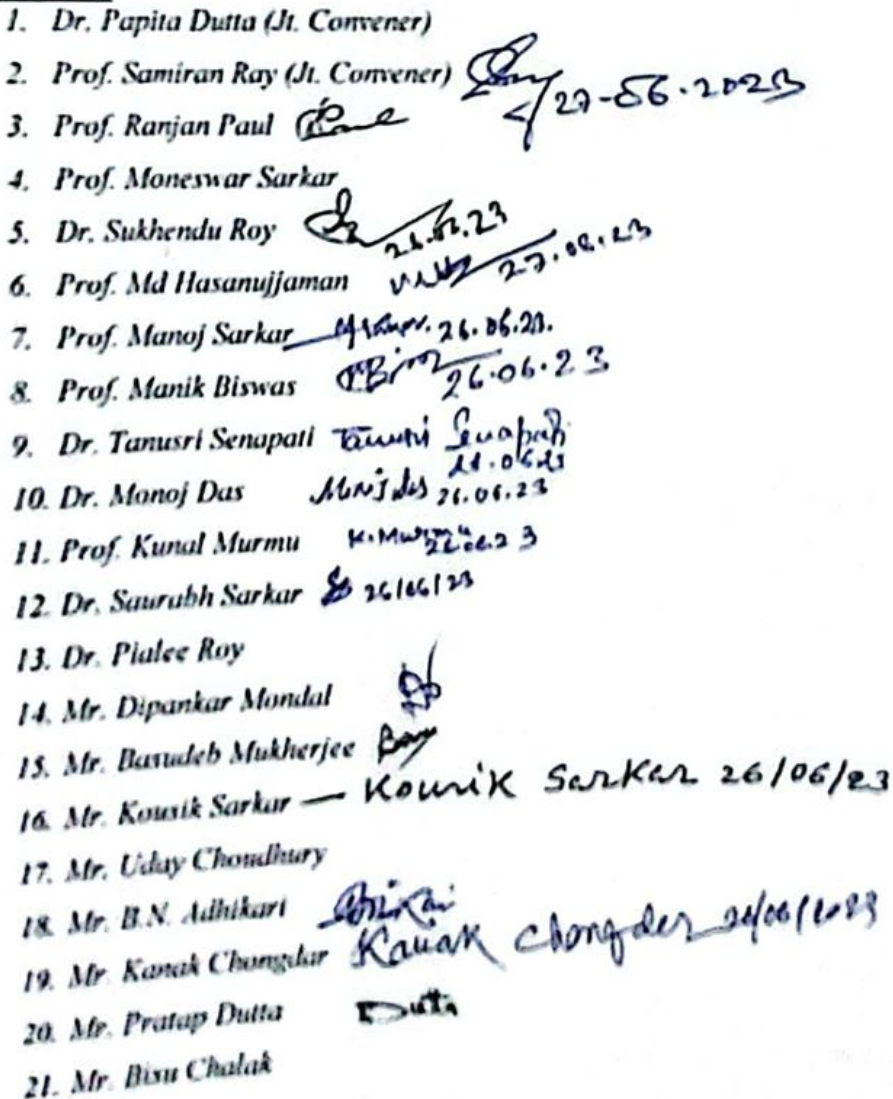 1. Dr. Papita Dutta (Jt. Convener)
2. Prof. Samiran Ray (Jt. Convener) 27-06.2023
3. Prof. Ranjan Paul
4. Prof. Moneswar Sarkar
5. Dr. Sukhendu Roy 26.06.23
6. Prof. Md Hasanujjaman 27.06.23
7. Prof. Manoj Sarkar 26.06.23.
8. Prof. Manik Biswas 26.06.23
9. Dr. Tanusri Senapati Tanusri Senapati
10. Dr. Monoj Das Monoj Das 26.06.23
11. Prof. Kunal Murmu K. Murmu 26.06.23
12. Dr. Saurabh Sarkar 26/06/23
13. Dr. Pialee Roy
14. Mr. Dipankar Mondal
15. Mr. Basudeb Mukherjee
16. Mr. Kousik Sarkar — Kousik Sarkar 26/06/23
17. Mr. Uday Choudhury
18. Mr. B.N. Adhikari
19. Mr. Kanak Chongdar Kanak Chongder
20. Mr. Pratap Dutta Dutta
21. Mr. Bisu Chalak